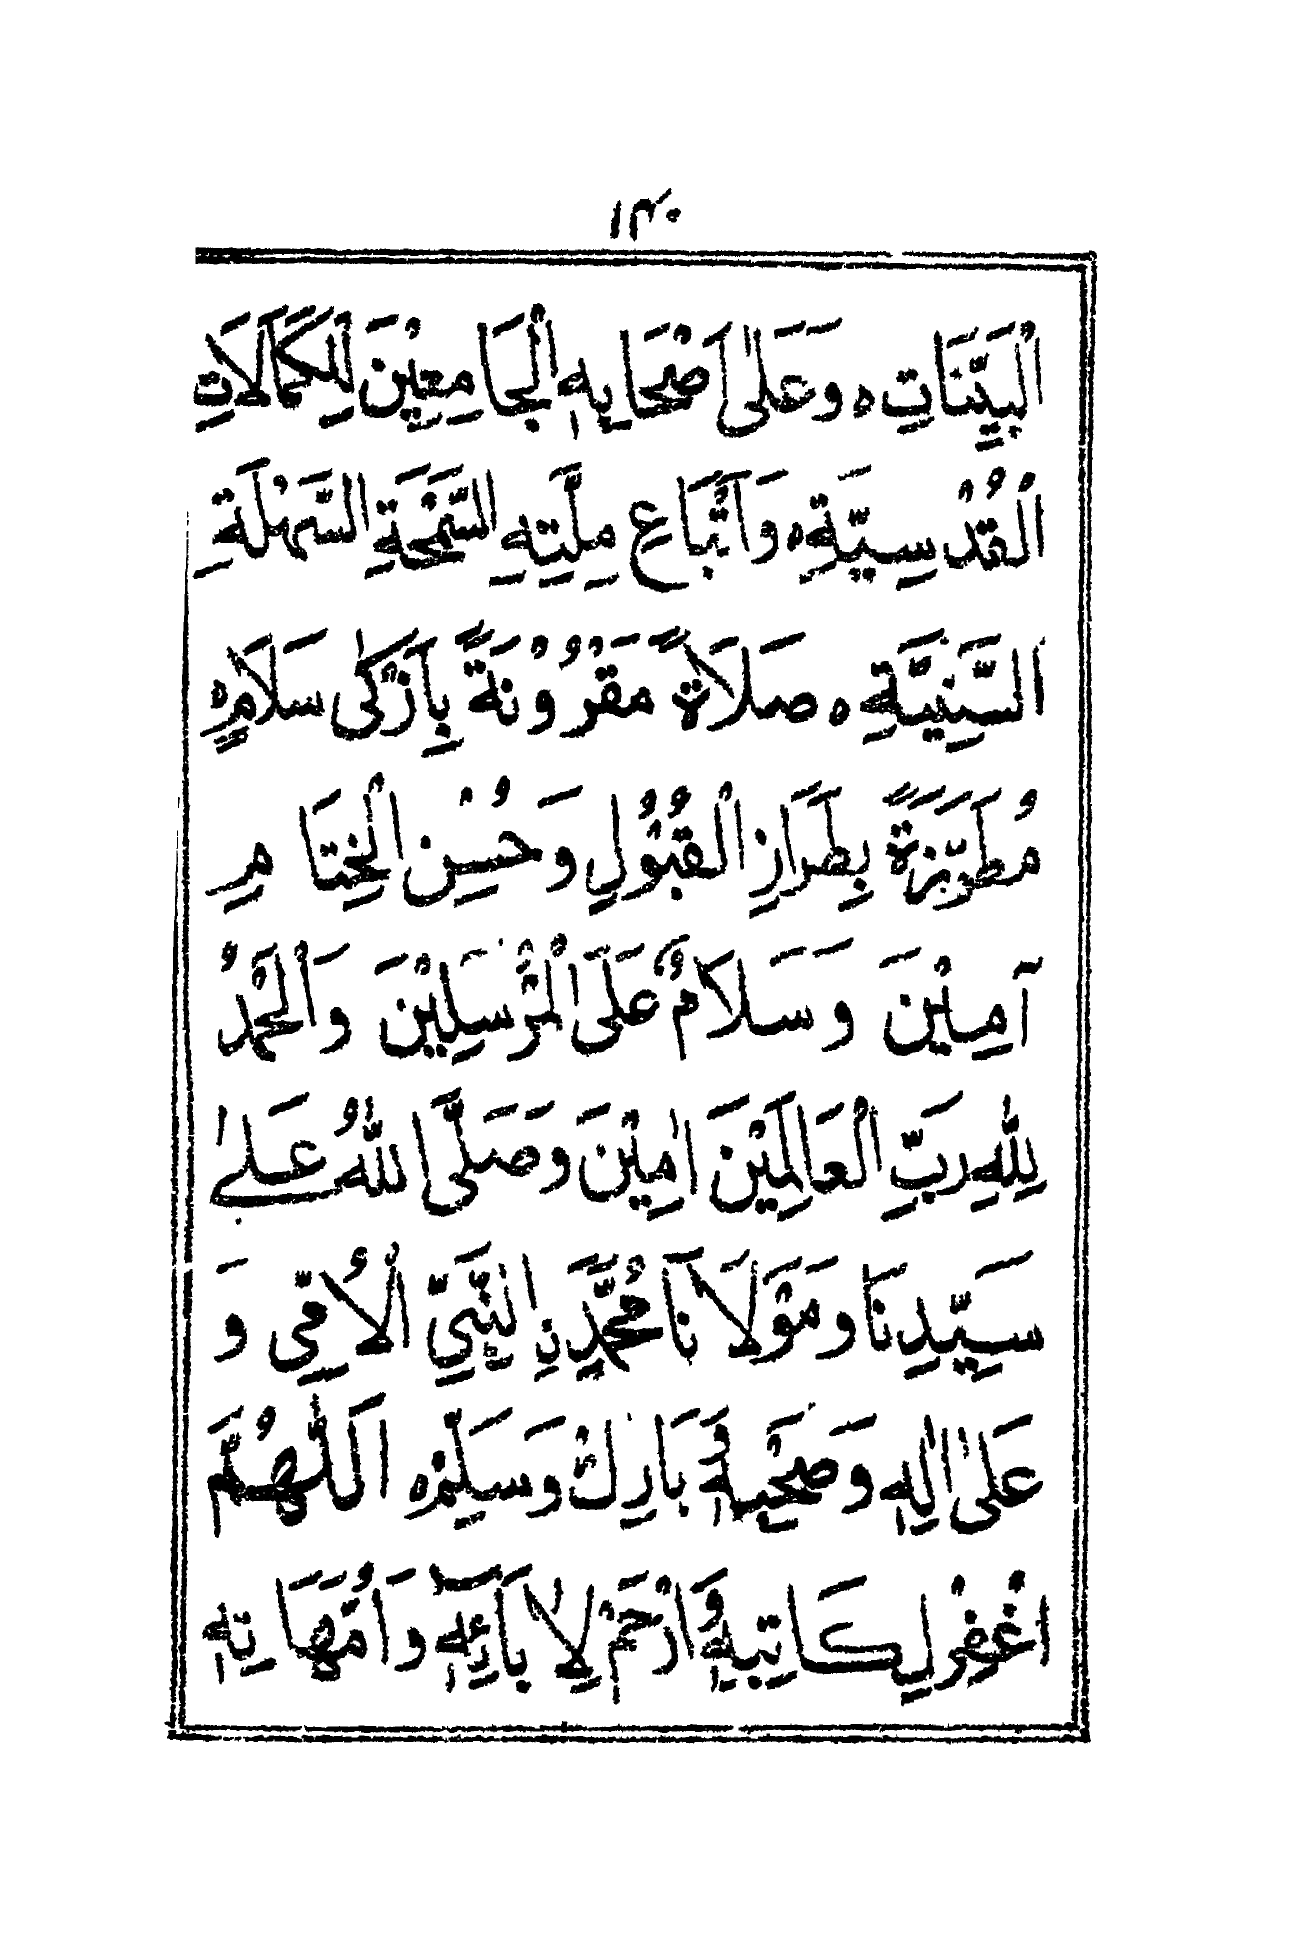 ١٣٠
الْبَيِّنَاتِ ه وَعَلٰى اَصْحَابِهِ الْجَامِعِيْنَ لِلْكَمَالَاتِ
الْقُدْسِيَّةِ ه وَاَتْبَاعِ مِلَّتِهِ السَّمْحَةِ السَّهْلَةِ
السَّنِيَّةِ ه صَلَاةً مَقْرُوْنَةً بِاَزْكٰى سَلَامٍ ه
مُطَرَّزَةً بِطَرَازِ الْقُبُوْلِ وَحُسْنِ الْخِتَامِ
آمِيْنَ وَسَلَامٌ عَلَى الْمُرْسَلِيْنَ وَالْحَمْدُ
لِلّٰهِ رَبِّ الْعَالَمِيْنَ اٰمِيْنَ وَصَلَّى اللّٰهُ عَلٰى
سَيِّدِنَا وَمَوْلَانَا مُحَمَّدِنِ النَّبِيِّ الْاُمِّيِّ وَ
عَلٰى اٰلِهٖ وَصَحْبِهٖ وَبَارِكْ وَسَلِّمْ ه اَللّٰهُمَّ
اغْفِرْ لِكَاتِبِهٖ وَارْحَمْ لِاٰبَآئِهٖ وَاُمَّهَاتِهٖ